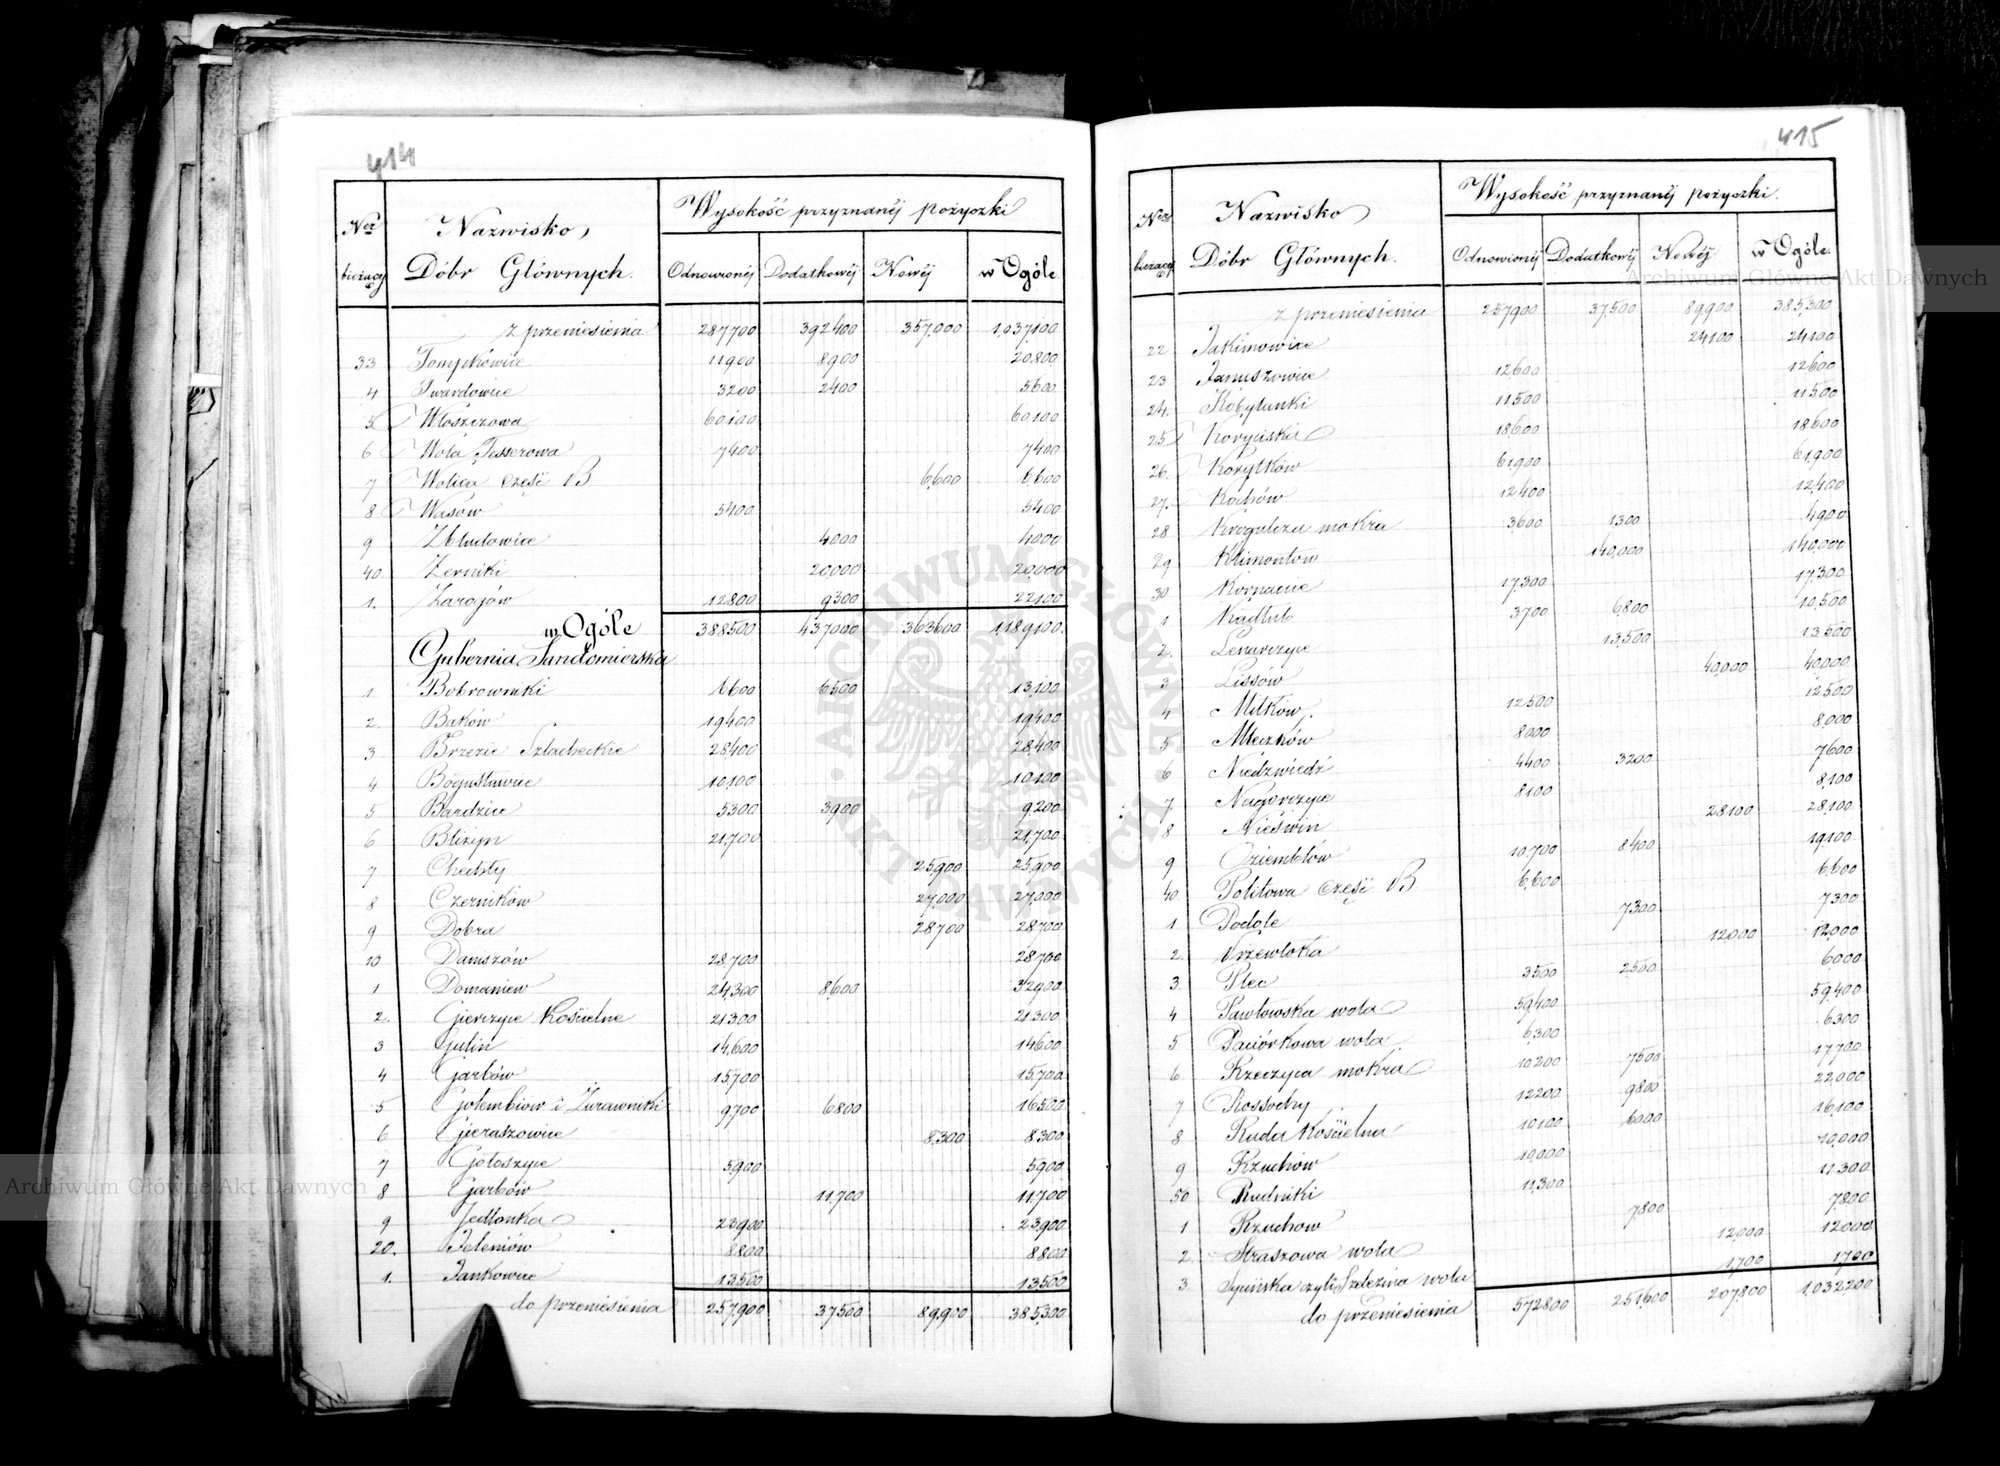 414
Ner bieżący Nazwisko Dóbr Głównych. Wysokość przyznanéj pożyczki
Odnowionéj Dodatkowéj Nowéj w Ogóle
z przeniesienia 287700 392400 357,000 1,037,100
33 Tompkowice 11900 8900 20,800
4 Twardowice 3200 2400 5600
5 Włoszczowa 60100 60100
6 Wola Tesserowa 7400 7400
7 Wolica część B 6,600 6600
8 Wasów 5400 5400
9 Zbludowice 4000 4000
40 Zerniki 20000 20,000
1. Zarogów 12800 9300 22100
w Ogóle 388500 437000 363600 1,189,100.
Gubernia Sandomierska
1 Bobrowniki 6600 6500 13,100
2. Baków 19400 19400
3 Brzezie Szlacheckie 28,400 28,400
4 Bogusławice 10,100 10,100
5 Bardzice 5300 3900 9200
6 Bliżyn 21,700 21,700
7 Chechły 25,900 25,900
8 Czerników 27,000 27,000
9 Dobra 28700 28700
10 Damszów 28,700 28,700
1 Domaniew 24,300 8,600 32,900
2. Gierczyce Kościelne 21300 21300
3 Gulin 14,600 14600
4 Garbów 15,700 15,700
5 Gołembiów i Żurawniki 9,700 6800 16500
6 Gieraszowice 8,300 8300
7 Gołoszyce 5900 5900
8 Garbów 11,700 11,700
9 Jedlonka 23,900 23,900
20. Jeleniów 8800 8800
1. Jankowice 13,500 13,500
do przeniesienia 257,900 37,500 89,900 385,300
415
Ner bieżący Nazwisko Dóbr Głównych. Wysokość przyznanéj pożyczki.
Odnowionéj Dodatkowéj Nowéj w Ogóle.
z przeniesienia 257,900 37,500 89,900 385,300
22 Jakimowice 24,100 24,100
23 Januszowice 12,600 12600
24. Kobylanki 11,500 11500
25 Koryciska 18,600 18600
26. Korytków 61,900 61,900
27. Kochów 12400 12,400
28 Kregulcza mokra 3,600 1300 4900
29 Klimontow 140,000 140,000
30 Kornacice 17,300 17,300
1 Kadłub 3700 6800 10,500
2. Lenarczyce 13,500 13.500
3 Lissów 40,000 40,000
4 Miłków. 12500 12,500
5 Mleczków 8000 8,000
6 Niedzwiedź 4400 3200 7600
7 Nagorzyce 8100 8,100
8 Nieświn 28100 28,100
9 Oziembłów 10,700 8400 19,100
40 Politowa część B 6,600 6,600
1 Podole 7,300 7300
2. Przewłoka 12000 12,000
3. Plec 3500 2500 6,000
4 Pawłowska wola 59,400 59,400
5 Paciórkowa wola 6,300 6300
6 Rzeczyca mokra 10,200 7500 17,700
7 Rossochy 12200 9800 22,000
8 Ruda Kościelna 10100 6000 16,100
9 Rzuchów 10,000 10,000
50 Rudniki 11,300 11300
1 Rzuchow 7,800 7,800
2 Straszowa wola 12,000 12000
3. czyli wola 1,700 1,700
do przeniesienia 572800 251,600 207800 1,032,200
Archiwum Główne Akt Dawnych
Archiwum Główne Akt Dawnych
ARCHIWUM GŁÓWNE AKT DAWNYCH